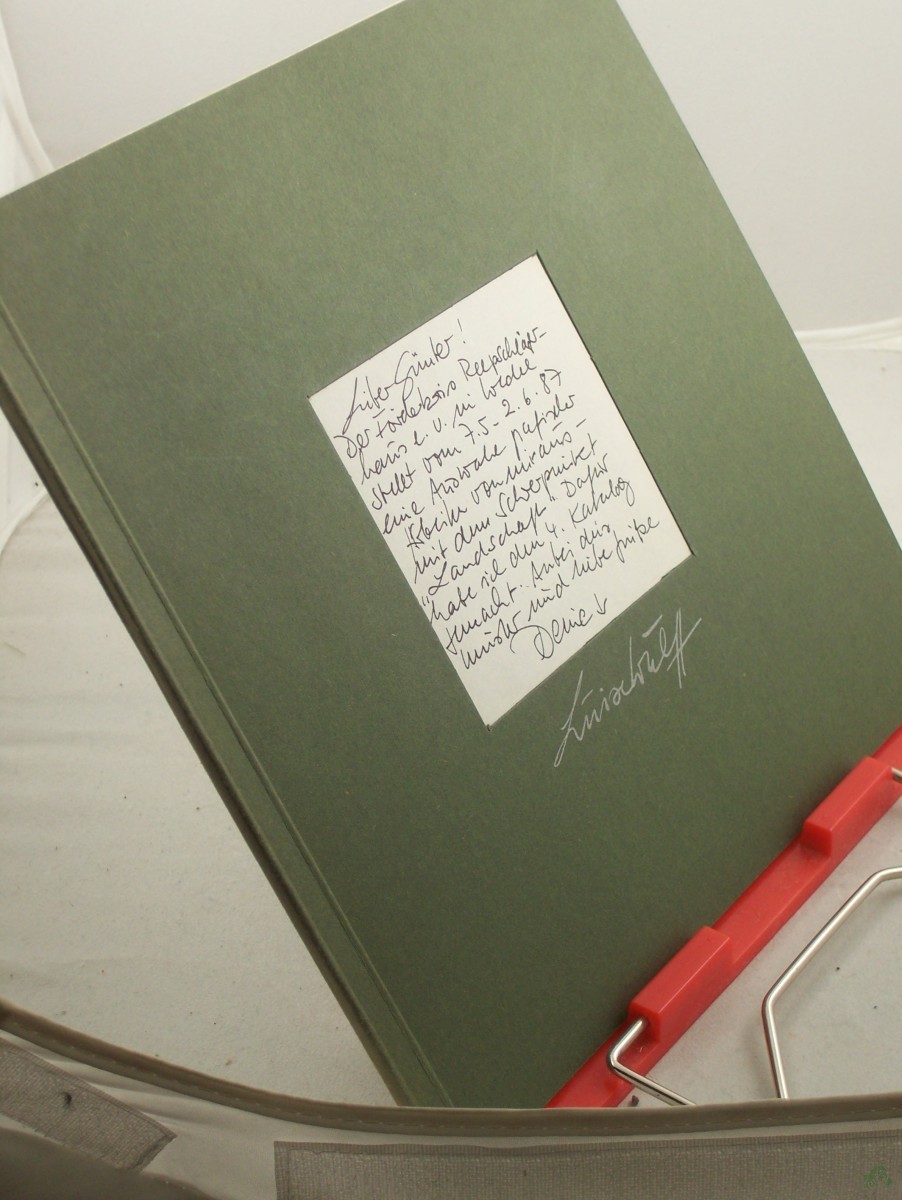 Lieber Günter!
Der Förderkreis Reepschläger-
haus e.V. in Wedel
stellt vom 7.5.-2.6.87
eine Auswahl grafischer
Blätter von mir aus -
mit dem Schwerpunkt
"Landschaft". Dafür
habe ich den 4. Katalog
gemacht. Anbei dies
und liebe Grüße
Deine